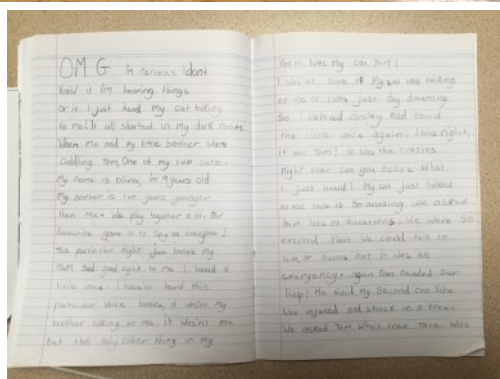 OMG im nervous I dont
know if I'm hearing things
or if I just heard my cat talking
to me! It all started in my dark room
When me and my little brother were
Cuddling Tom, One of my two cats.
My name is Olivia, I'm 9 years old
My brother is two years younger
then me. We play together a lot. Our
favourite game is to Spy on everyone!
This particular night, Just before my
Mum said good night to me I heard a
little voice. I haven't heard this
particular voice before, it wasn't my
brother talking to me, it wasn't me
but the only other thing in my
room was my cat Tom!
I wasn't sure if my cat was talking
to me or I was just day dreaming
So I listened closley and heard
the little voice again. I was right,
it was Tom! It was the craziest
night ever can you belive what
I just heard! My cat just talked
to me this is so amazing. We asked
him lots of questions. We were so
excited that we could talk to
him. It turns out it was an
emergency, again Tom needed our
help! He said my second cat
was injured and stuck in a tree.
We asked Tom what tree was